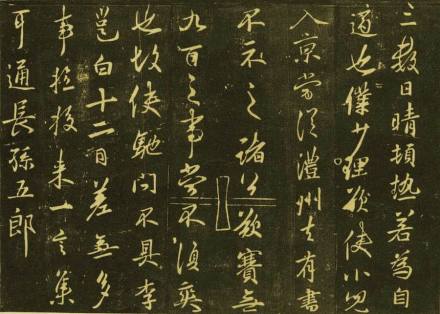 三數日晴頓熱若為自
適也僕少理欲使小兒
入京當從澧州去有書
不示之諸公欲賽無
九百之事當不須爾
也故使馳問不具李
邕白十二日差無多
事拉投來一言集
耳通長孫五郎